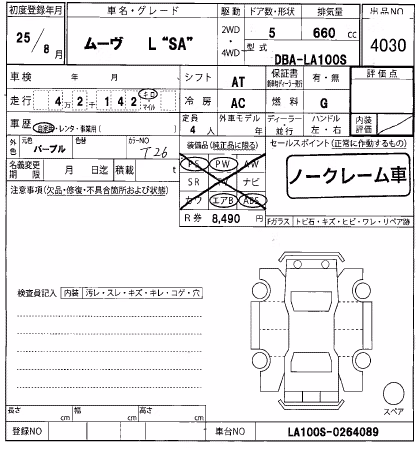 初度登録年月 車名・グレード 駆動 ドア数・形状 排気量 出品NO
25/8月 ムーヴ L “SA” 2WD・4WD 5 660 cc 4030
型式 DBA-LA100S
車検 年 月 シフト AT 保証書 有・無 評価点
走行 4万2千142 キロ マイル 冷房 AC 燃料 G
車歴 自家用・レンタ・事業用( ) 定員 4人 外車モデル 年 ディーラー・並行 ハンドル 左・右 内装評価
外色 元色 パープル 色替 カラーNO T26
装備品(純正品に限る) セールスポイント(正常に作動するもの)
PS PW AW
SR TV ナビ
カワ エアB ABS
ノークレーム車
名義変更期限 月 日迄 積載 t
注意事項(欠品・修復・不具合箇所および状態)
R券 8,490 円
Fガラス トビ石・キズ・ヒビ・ワレ・リペア跡
検査員記入 内装 汚レ・スレ・キズ・キレ・コゲ・穴
スペア
長さ cm 幅 cm 高さ cm
登録NO 車台NO LA100S-0264089